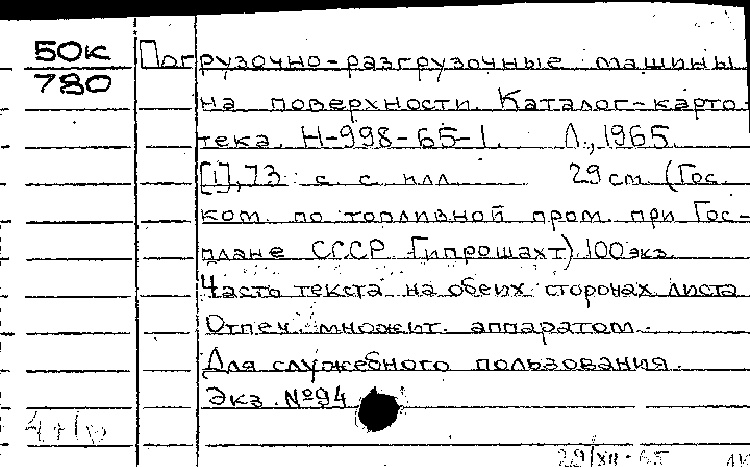 50к
780
Погрузочно-разгрузочные машины
на поверхности. Каталог-карто-
тека. Н-998-65-1. Л., 1965.
[1], 73 с. с илл. 29 см. (Гос.
ком. по топливной пром. при Гос-
плане СССР. Гипрошахт). 100 экз.
Часть текста на обеих сторонах листа
Отпеч. множит. аппаратом.
Для служебного пользования.
Экз. №94
29/XII-65